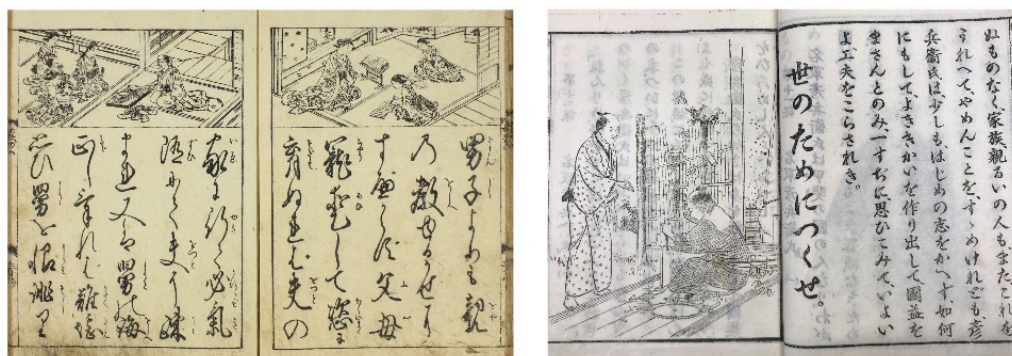 男子よりも親
の教ゆるかせに
すべからず父母
寵愛して恣に
育ぬれば夫の
家に行て必氣
随にて夫に疎
まれ又は舅の誨
正しければ難堪
思ひ舅を恨誹り
ぬものなく、家族親るいの人も、またこれを
うれへて、やめんことを、すゝめけれども、彦
兵衞氏は、少しも、はじめの志をかへず、如何
にもして、よききかいを作り出して、國益を
まさんとのみ、一すぢに思ひこみて、いよい
よ、工夫をこらされき。
世のためにつくせ。